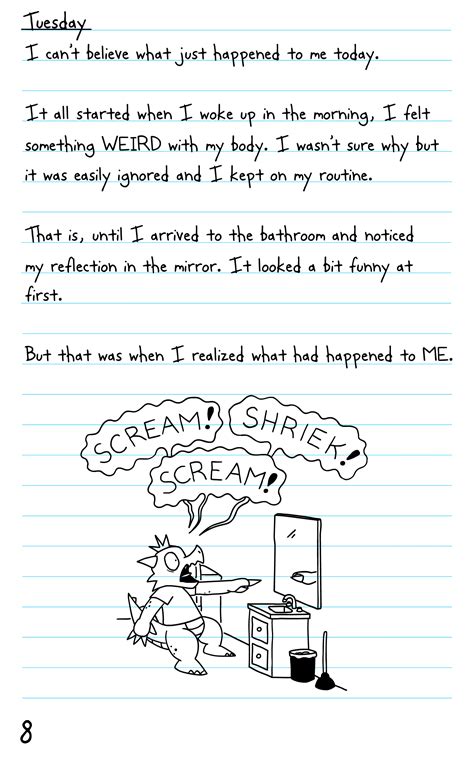 Tuesday
I can't believe what just happened to me today.
It all started when I woke up in the morning, I felt
something WEIRD with my body. I wasn't sure why but
it was easily ignored and I kept on my routine.
That is, until I arrived to the bathroom and noticed
my reflection in the mirror. It looked a bit funny at
first.
But that was when I realized what had happened to ME.
SCREAM!
SHRIEK!
SCREAM!
8